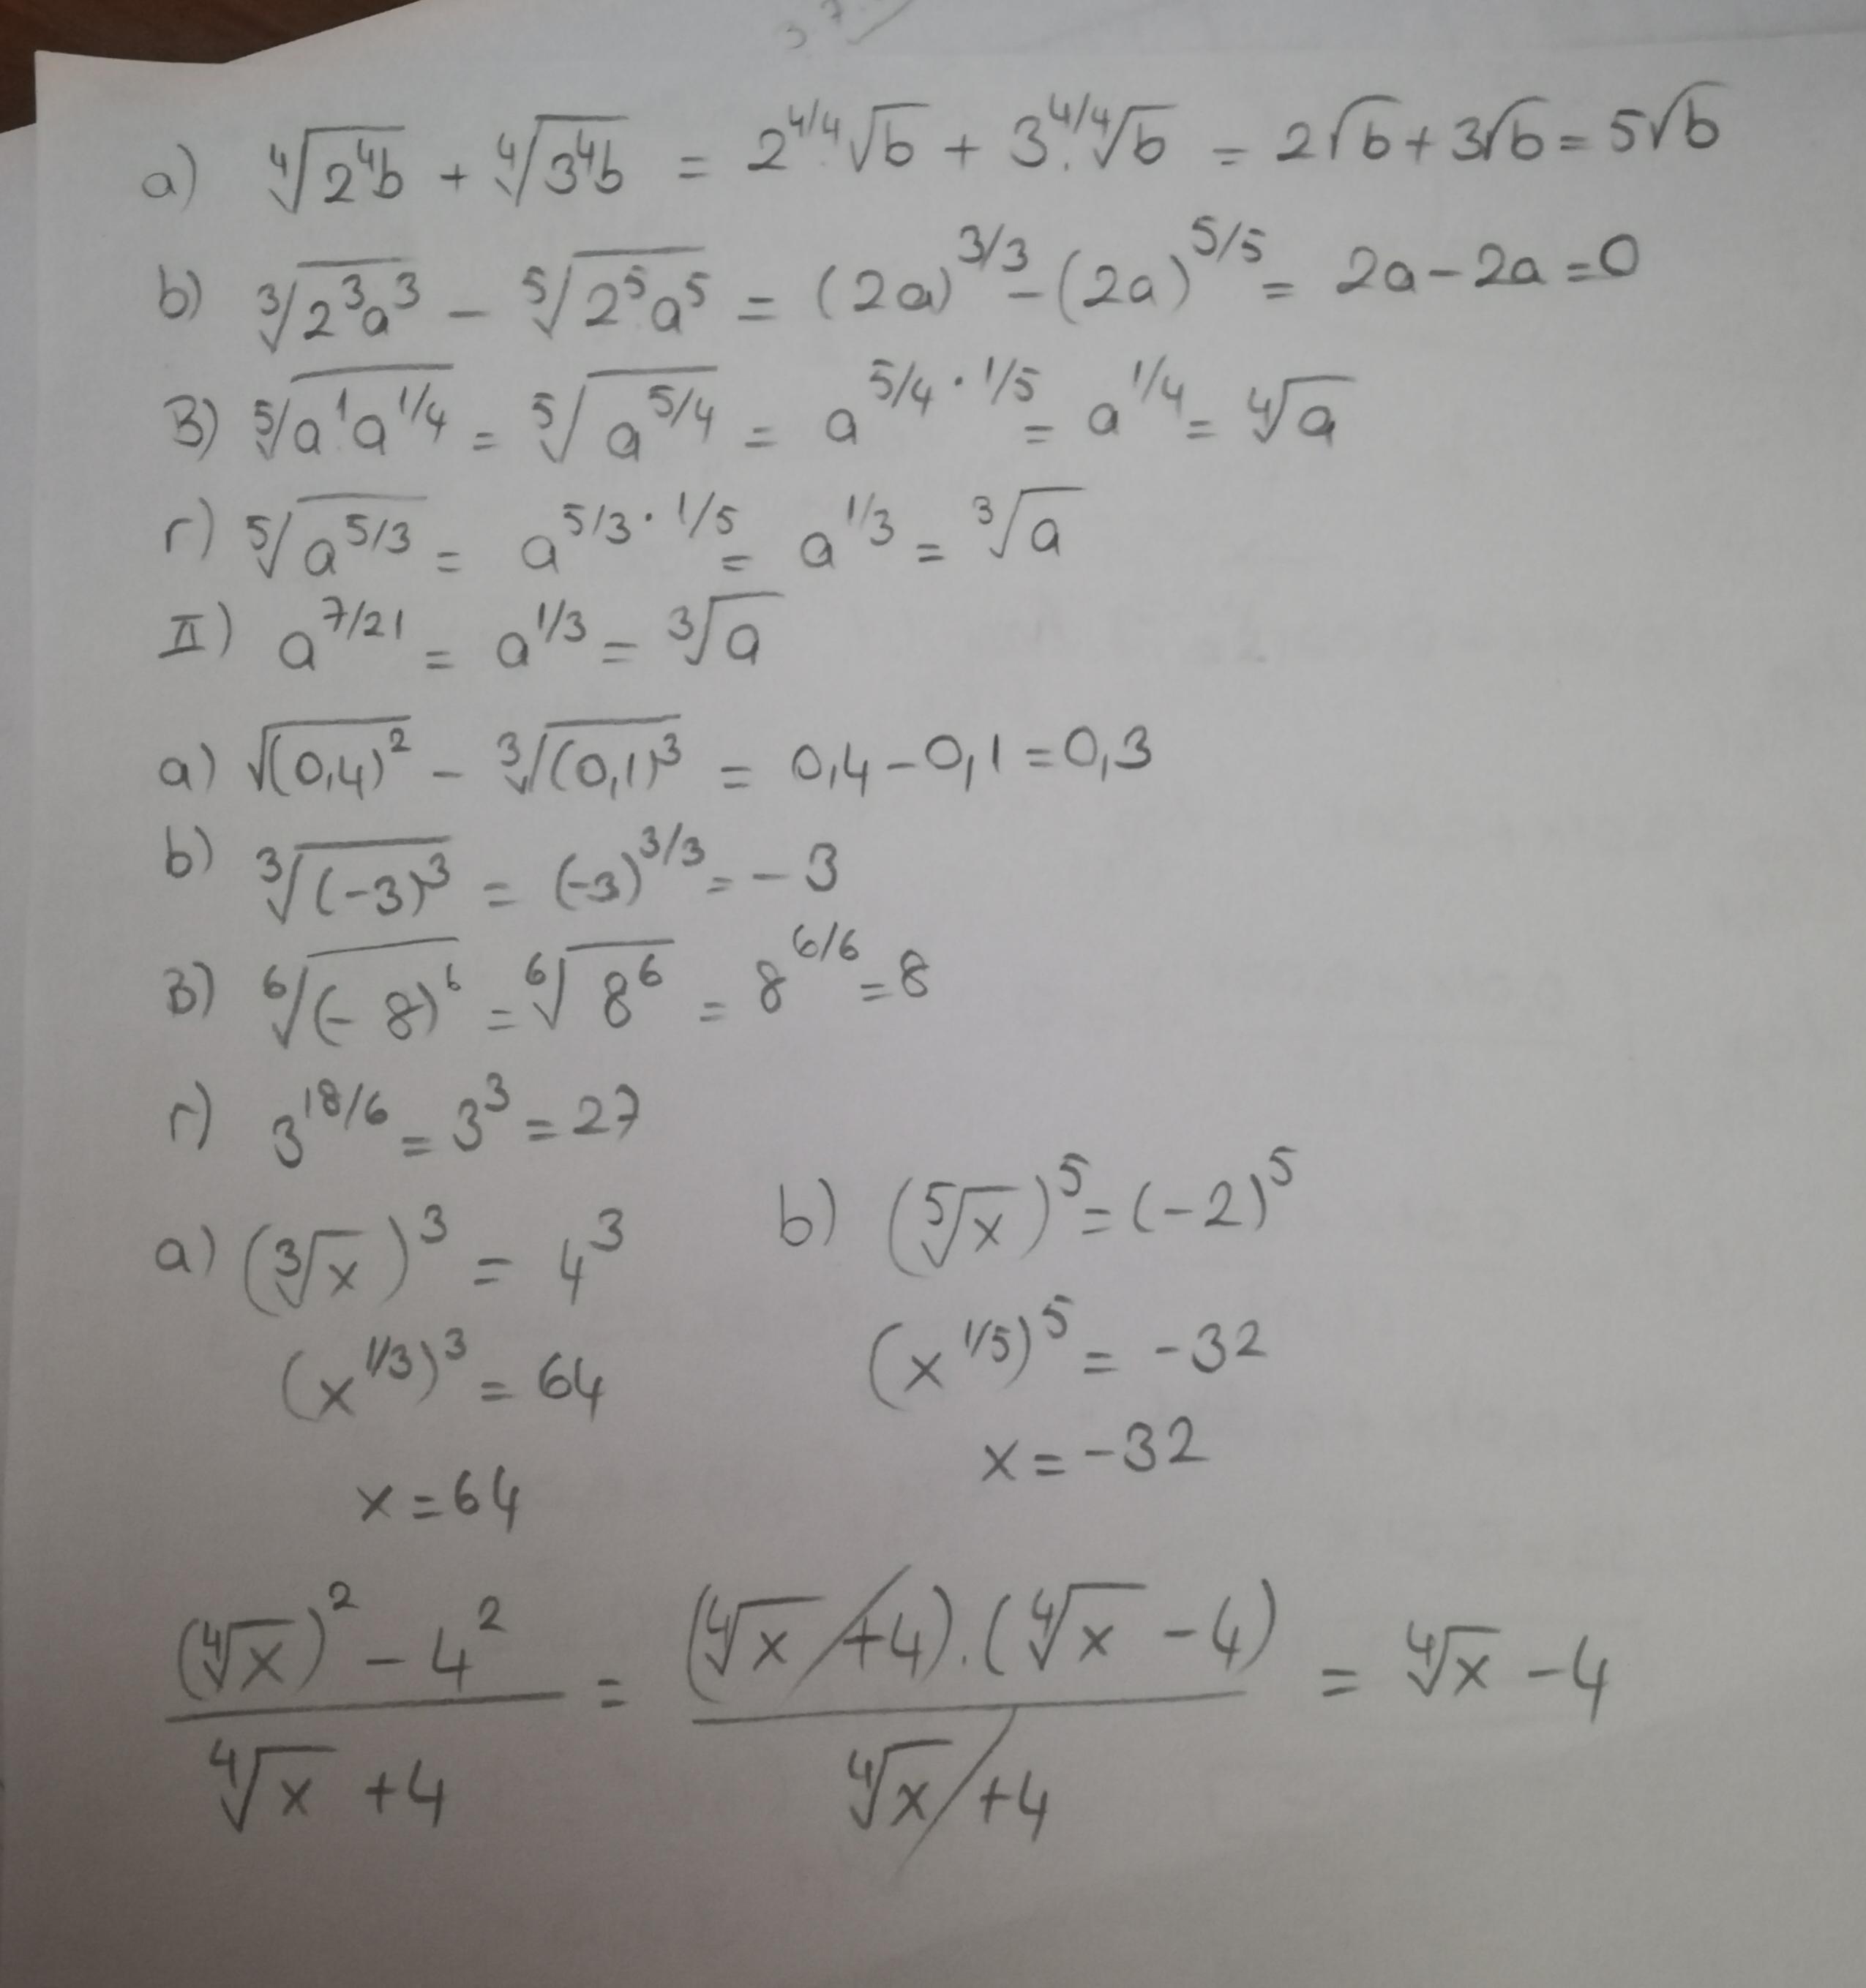 a) ∜(2⁴b) + ∜(3⁴b) = 2^(4/4)·√b + 3^(4/4)·√b = 2√b + 3√b = 5√b
b) ∛(2³a³) − ⁵√(2⁵a⁵) = (2a)^(3/3) − (2a)^(5/5) = 2a − 2a = 0
B) ⁵√(a¹·a^(1/4)) = ⁵√(a^(5/4)) = a^(5/4 · 1/5) = a^(1/4) = ∜a
r) ⁵√(a^(5/3)) = a^(5/3 · 1/5) = a^(1/3) = ∛a
II) a^(7/21) = a^(1/3) = ∛a
a) √((0,4)²) − ∛((0,1)³) = 0,4 − 0,1 = 0,3
b) ∛((-3)³) = (-3)^(3/3) = -3
B) ⁶√((-8)⁶) = ⁶√(8⁶) = 8^(6/6) = 8
r) 3^(18/6) = 3³ = 27
a) (∛x)³ = 4³
(x^(1/3))³ = 64
x = 64
b) (⁵√x)⁵ = (-2)⁵
(x^(1/5))⁵ = -32
x = -32
((∜x)² − 4²)/(∜x + 4) = ((∜x + 4)·(∜x − 4))/(∜x + 4) = ∜x − 4